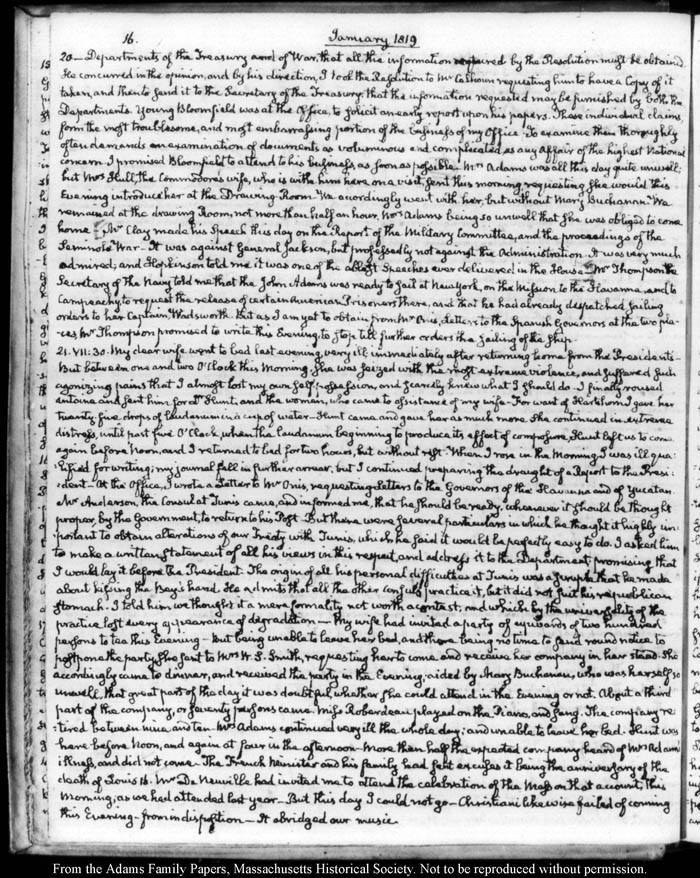 16. January 1819
20 — Departments of the Treasury and of War, that all the information required by the Resolution might be obtained
He concurred in the opinion, and by his direction, I took the Resolution to Mr Calhoun requesting him to have a Copy of it
taken, and then to send it to the Secretary of the Treasury, that the information requested may be furnished by both the
Departments. Young Bloomfield was at the Office, to solicit an early report upon his papers. These individual claims,
form the most troublesome, and most embarrassing portion of the business of my Office. To examine them thoroughly
often demands an examination of documents as voluminous and complicated as any affair of the highest National
concern. I promised Bloomfield to attend to his business, as soon as possible. Mrs Adams was all this day quite unwell;
but Mrs Hull, the Commodore's wife, who is with him here on a visit, sent this morning requesting she would this
Evening introduce her at the Drawing Room. We accordingly went with her, but without Mary Buchanan. We
remained at the drawing Room, not more than half an hour, Mrs Adams being so unwell that she was obliged to come
home. Mr Clay made his Speech this day on the Report of the Military Committee, and the proceedings of the
Seminole War. It was against General Jackson, but professedly not against the Administration. It was very much
admired; and Hopkinson told me it was one of the ablest Speeches ever delivered in the House. Mr Thompson the
Secretary of the Navy told me that the John Adams was ready to sail at New York, on the Mission to the Havanna, and to
Campeachy to request the release of certain American Prisoners there, and that he had already despatched sailing
orders to her Captain, Wadsworth. But as I am yet to obtain from Mr Onis, Letters to the Spanish Governors at the two pla-
ces, Mr Thompson promised to write this Evening, to stop till further orders the sailing of the Ship.
21. VII:30. My dear wife went to bed last evening, very ill immediately after returning home from the Presidents.
But between one and two O'Clock this Morning, she was seized with the most extreme violence, and suffered such
agonizing pains that I almost lost my own self possession, and scarcely knew what I should do. I finally roused
Antoine and sent him for Dr Hunt, and the woman, who came to assistance of my wife. For want of Hartshorn I gave her
twenty five drops of laudanum in a cup of water. Hunt came and gave her as much more. She continued in extreme
distress, until past five O'Clock, when the laudanum beginning to produce its effect of composure, Hunt left us to come
again before Noon, and I returned to bed for two hours, but without rest. When I rose in the Morning I was ill qua-
lified for writing; my journal fell in further arrear, but I continued preparing the draught of a Report to the Presi-
dent. At the Office, I wrote a Letter to Mr Onis, requesting letters to the Governors of the Havanna and of Yucatan.
Mr Anderson, the Consul at Tunis came, and informed me, that he should be ready, whenever it should be thought
proper, by the Government, to return to his Post. But there were several particulars in which he thought it highly im-
portant to obtain alterations of our Treaty with Tunis, which he said it would be perfectly easy to do. I asked him
to make a written statement of all his views in this respect, and address it to the Department, promising that
I would lay it before the President. The origin of all his personal difficulties at Tunis was a scruple that he made
about kissing the Bey's hand. He admits that all the other Consuls practice it, but it did not suit his republican
stomach. I told him we thought it a mere formality not worth a contest, and which by the universality of the
practice lost every appearance of degradation — My wife had invited a party of upwards of two hundred
persons to tea this Evening — But being unable to leave her bed, and there being no time to send round notice to
postpone the party, she sent to Mrs W. S. Smith, requesting her to come and receive her company in her stead. She
accordingly came to dinner, and received the party in the Evening, aided by Mary Buchanan, who was herself so
unwell, that great part of the day it was doubtful, whether she could attend in the Evening or not. About a third
part of the company, or seventy persons came. Miss Roberdeau played on the Piano, and sang. The company re-
tired between nine and ten. Mrs Adams continued very ill the whole day; and unable to leave her bed. Hunt was
here before Noon, and again at four in the afternoon. More than half the expected company heard of Mrs Adams'
illness, and did not come. The French Minister and his family had sent excuses it being the anniversary of the
death of Louis 16. Mr De Neuville had invited me to attend the celebration of the Mass on that account, this
Morning, as we had attended last year — But this day I could not go — Christiani likewise failed of coming
this Evening — from indisposition — It abridged our music.
From the Adams Family Papers, Massachusetts Historical Society. Not to be reproduced without permission.